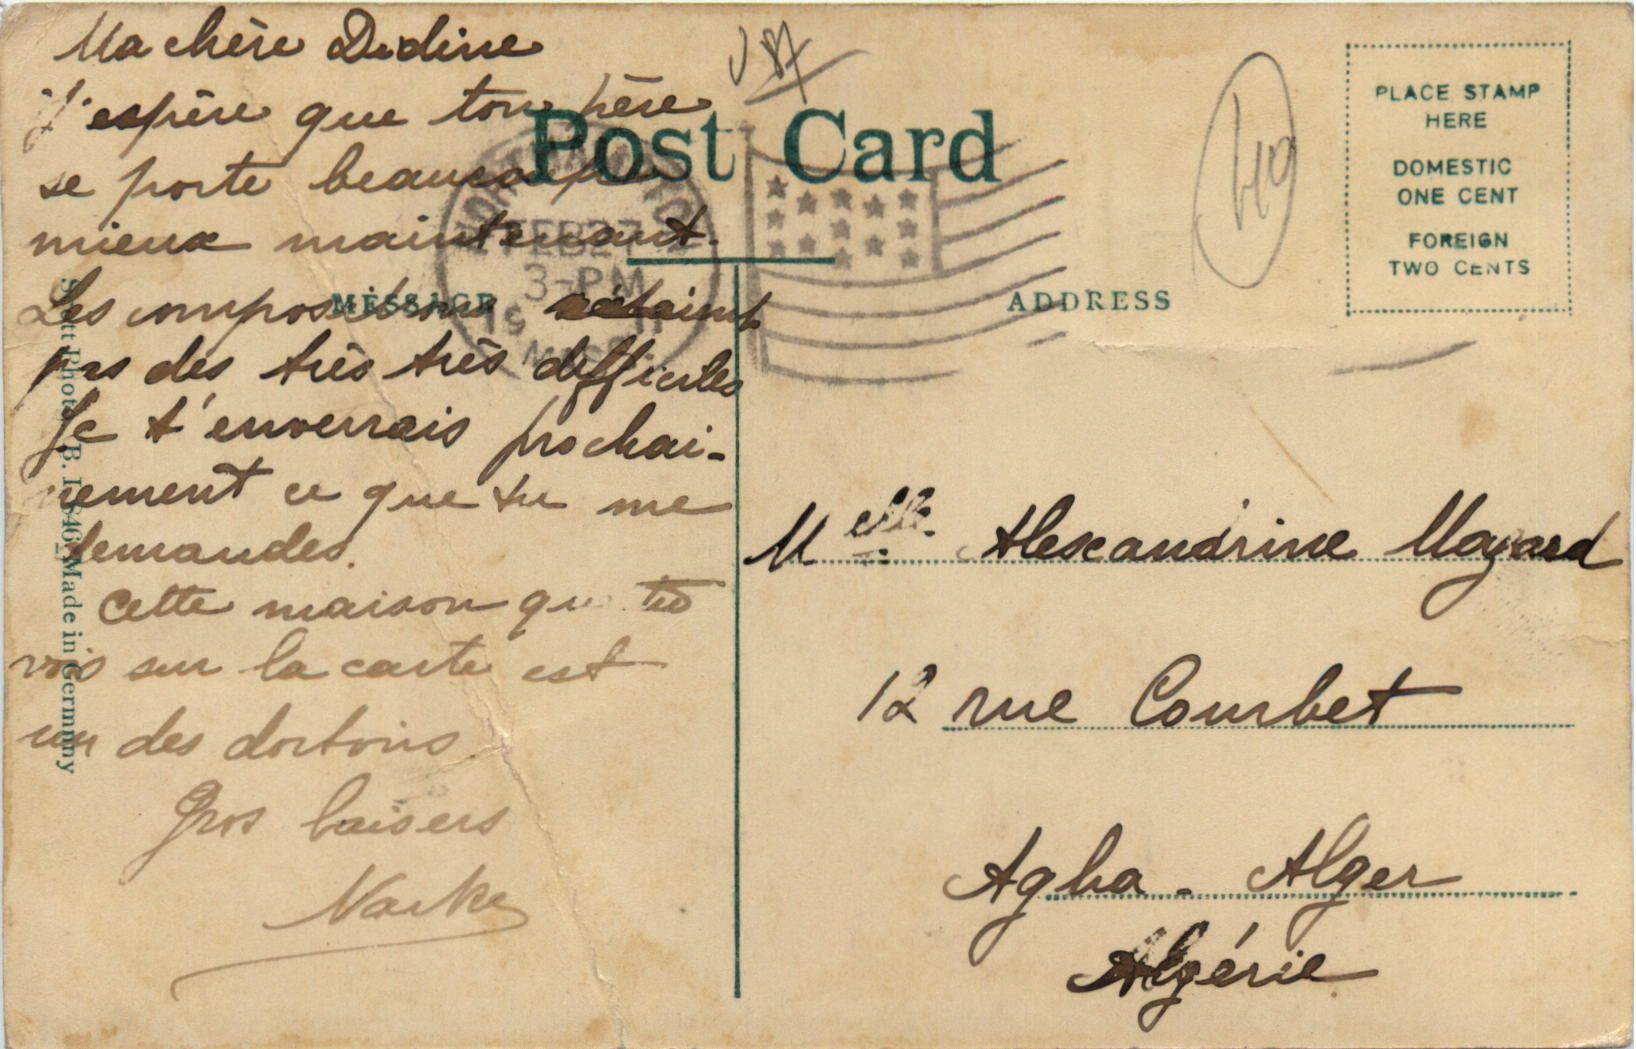 Ma chère Didine
J'espère que ton père
se porte beaucoup
mieux maintenant.
Les compositions n'étaient
pas des très très difficiles
Je t'enverrais prochai-
nement ce que tu me
demandes.
Cette maison que tu
vois sur la carte est
un des dortoirs
Gros baisers
USA
Post Card
MESSAGE
ADDRESS
FEB 27
3-PM
MASS.
PLACE STAMP
HERE
DOMESTIC
ONE CENT
FOREIGN
TWO CENTS
Made in Germany
Melle Alexandrine Mazard
12 rue Courbet
Agha - Alger
Algérie